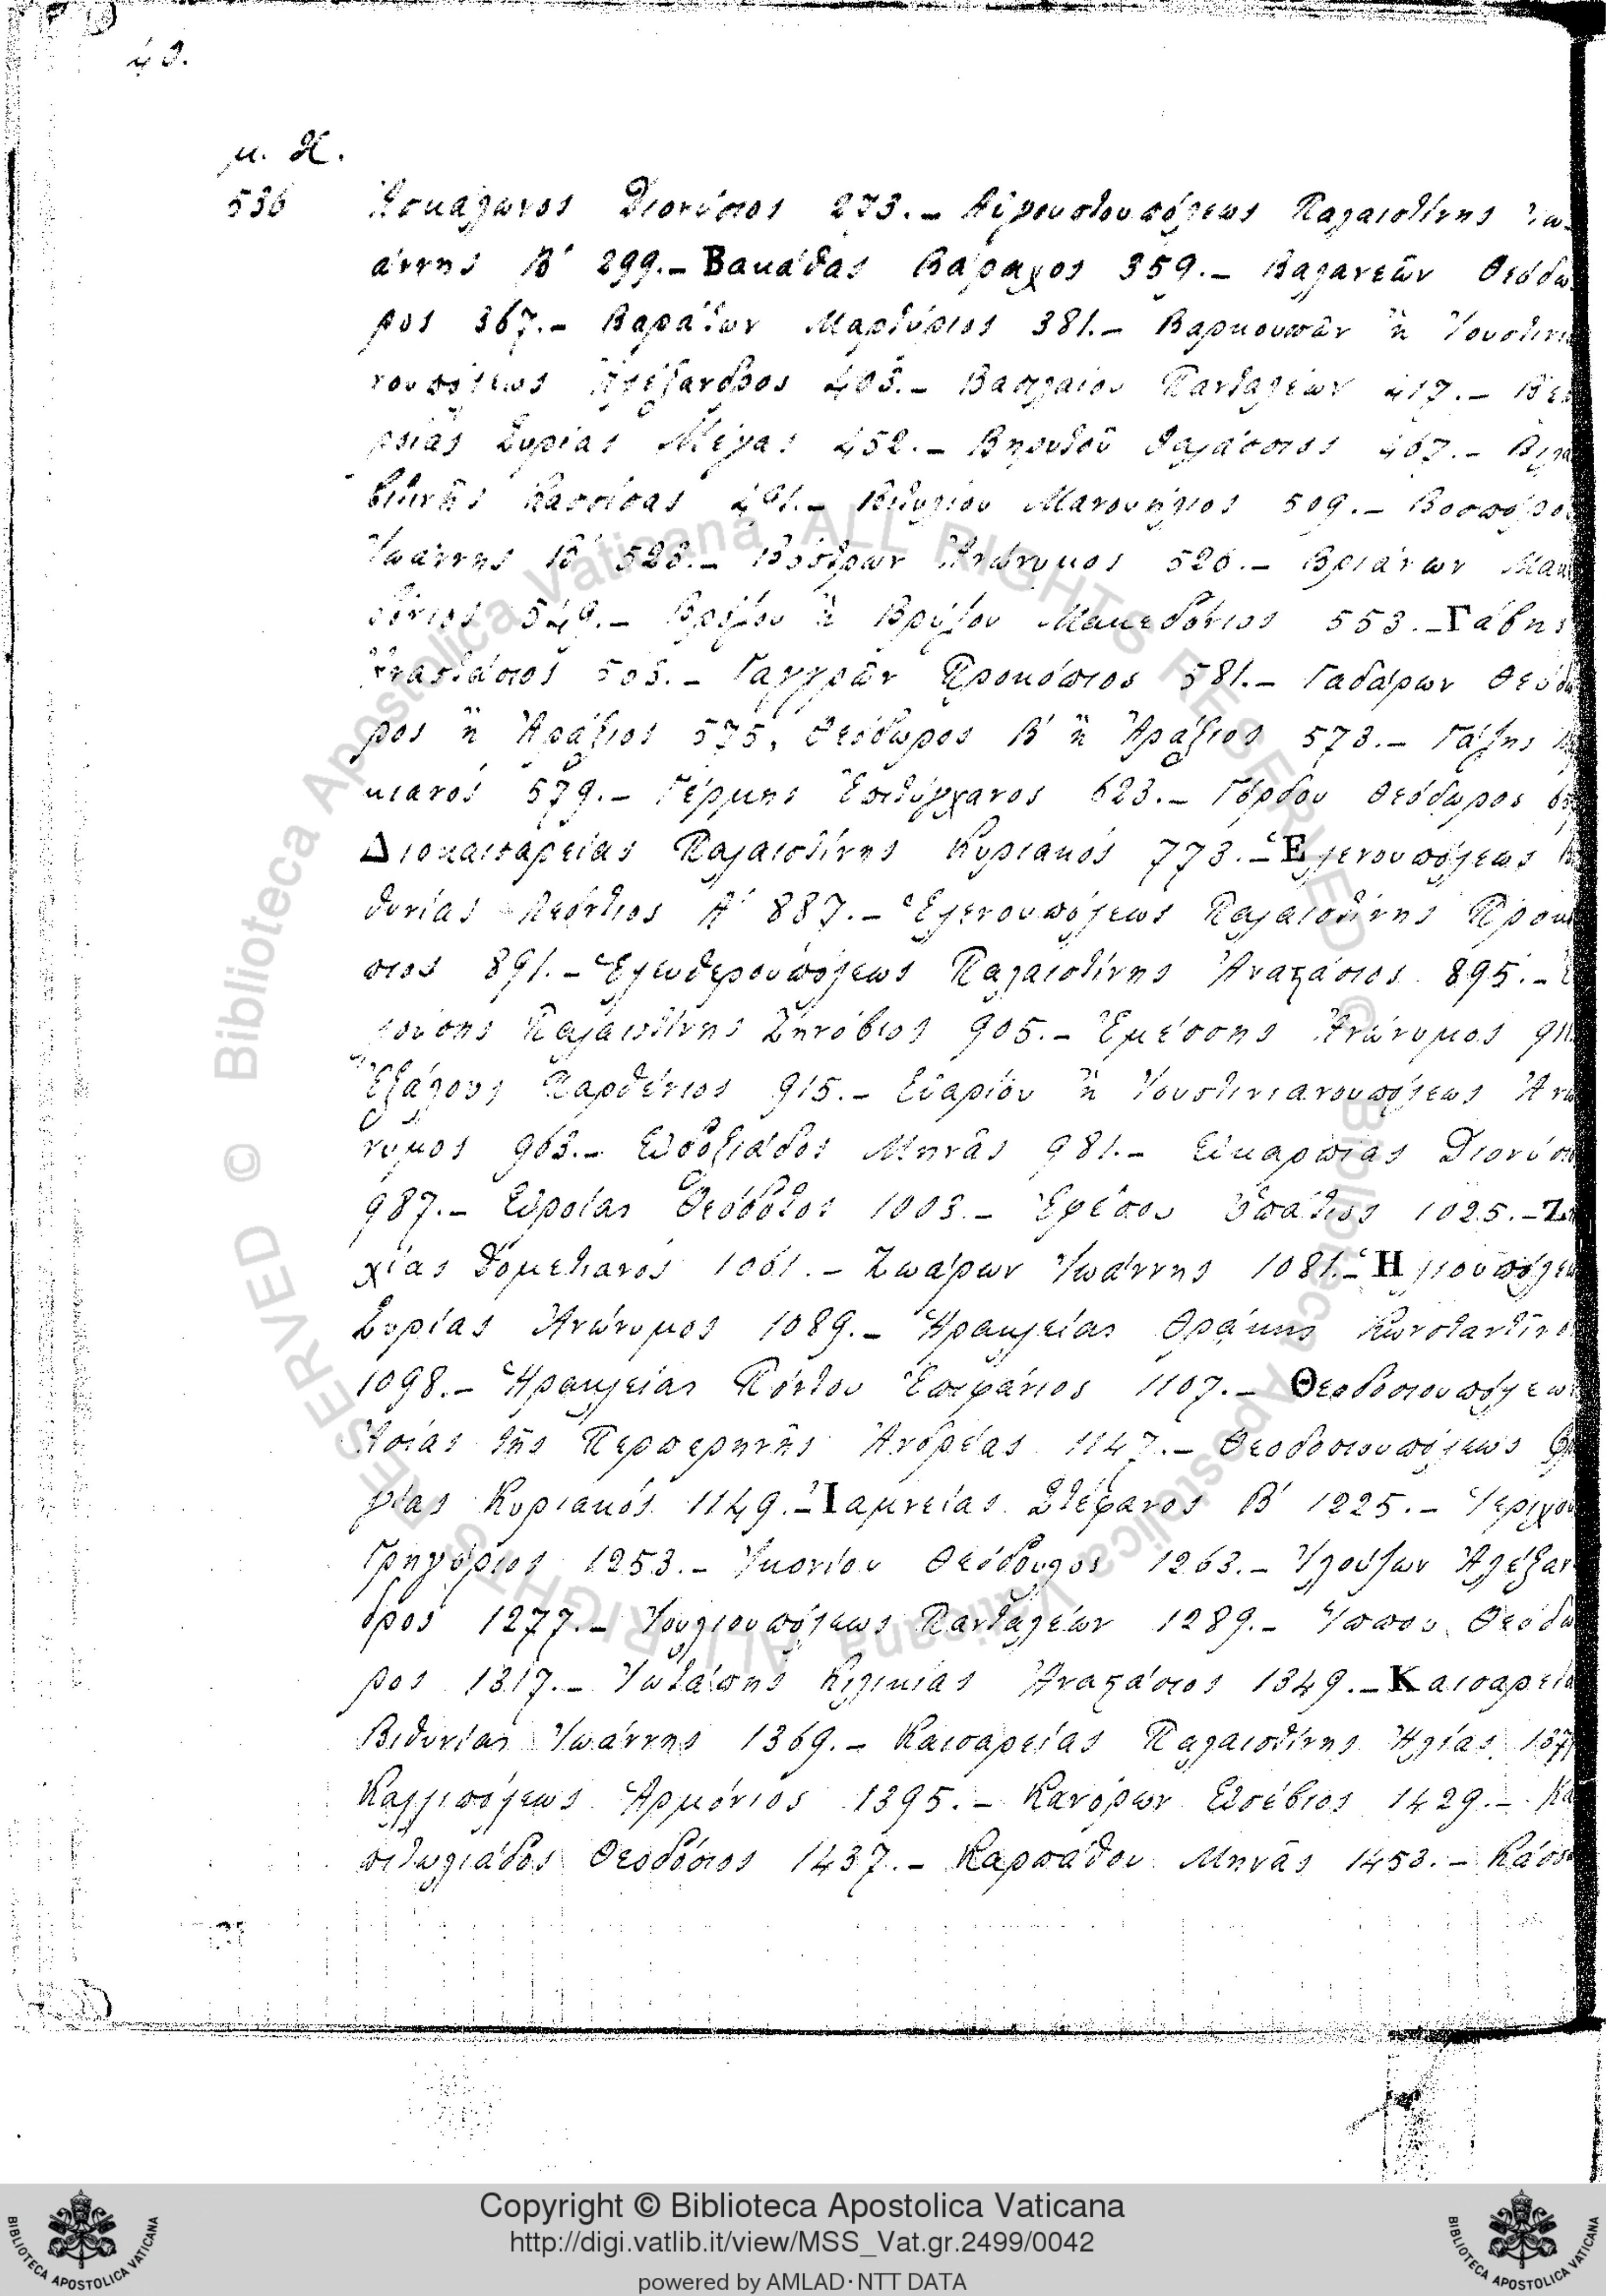 40.
μ. Χ.
536 Ἀσκάλωνος Διονύσιος 273.– Αὐγουστουπόλεως Παλαιστίνης Ἰω-
άννης Β′ 299.– Βακάθας Βάραχος 359.– Βαλανεῶν Θεόδω
ρος 367.– Βαράτων Μαρτύριος 381.– Βαρκουσῶν ἢ Ἰουστινια
νουπόλεως Ἀλέξανδρος 403.– Βασιλαίου Πανταλέων 417.– Βε
ροίας Συρίας Μέγας 452.– Βηρυτοῦ Θαλάσσιος 467.–
Κασσίσας 491.– Μανουήλιος 509.– Βοσπόρου
Ἰωάννης Β′ 523.– Βόστρων Ἀνώνυμος 526.– Βριάνων Μακε
δόνιος 549.– ἢ Βρύζου Μακεδόνιος 553.– Γάβης
Ἀναστάσιος 563.– Γαγγρῶν Προκόπιος 581.– Γαδάρων Θεόδω
ρος ἢ Ἀράξιος 575, Θεόδωρος Β′ ἢ Ἀράξιος 573.– Γάζης Μα
κιανός 579.– Γέρμης Ἐπιτύγχανος 623.– Γόρδου Θεόδωρος
Διοκαισαρείας Παλαιστίνης Κυριακός 773.– Ἑλενουπόλεως Βι
θυνίας Λεόντιος Α′ 887.– Ἑλενουπόλεως Παλαιστίνης Προκό
πιος 891.– Ἐλευθερουπόλεως Παλαιστίνης Ἀναστάσιος 895.– Ἐ
λούσης Παλαιστίνης Ζηνόβιος 905.– Ἐμέσσης Ἀνώνυμος 911
Ἐξάλους Παρθένιος 915.– Εὐαρίου ἢ Ἰουστινιανουπόλεως Ἀνώ
νυμος 963.– Εὐδοξιάδος Μηνᾶς 981.– Εὐκαρπίας Διονύσι
987.– Εὐροίας Θεόδοτος 1003.– Ἐφέσου Ὑπάτιος 1025.– Ζι
χίας Δομετιανός 1061.– Ζωάρων Ἰωάννης 1081.– Ἡλιουπόλεω
Συρίας Ἀνώνυμος 1089.– Ἡρακλείας Θράκης Κωνσταντῖνο
1098.– Ἡρακλείας Πόντου Ἐπιφάνιος 1107.– Θεοδοσιουπόλεω
Ἀσίας τῆς Περπερηνῆς Ἀνδρέας 1147.– Θεοδοσιουπόλεως Φρυ
γίας Κυριακός 1149.– Ἰαμνείας Στέφανος Β′ 1225.– Ἱεριχοῦ
Γρηγόριος 1253.– Ἰκονίου Θεόδουλος 1263.– Ἰλούζων Ἀλέξαν
δρος 1277.– Ἰουλιουπόλεως Πανταλέων 1289.– Ἵππου Θεόδω
ρος 1317.– Ἰωτάπης Κιλικίας Ἀναστάσιος 1349.– Καισαρεία
Βιθυνίας Ἰωάννης 1369.– Καισαρείας Παλαιστίνης Ἠλίας 137
Καλλιπόλεως Ἁρμόνιος 1395.– Κανόρων Εὐσέβιος 1429.– Κα
πιτωλιάδος Θεοδόσιος 1437.– Καρπάθου Μηνᾶς 1453.– Κάσσ
© Biblioteca Apostolica Vaticana ALL RIGHTS RESERVED © Biblioteca Apostolica Vaticana ALL RIGHTS RESERVED
BIBLIOTECA APOSTOLICA VATICANA
Copyright © Biblioteca Apostolica Vaticana
http://digi.vatlib.it/view/MSS_Vat.gr.2499/0042
powered by AMLAD·NTT DATA
BIBLIOTECA APOSTOLICA VATICANA